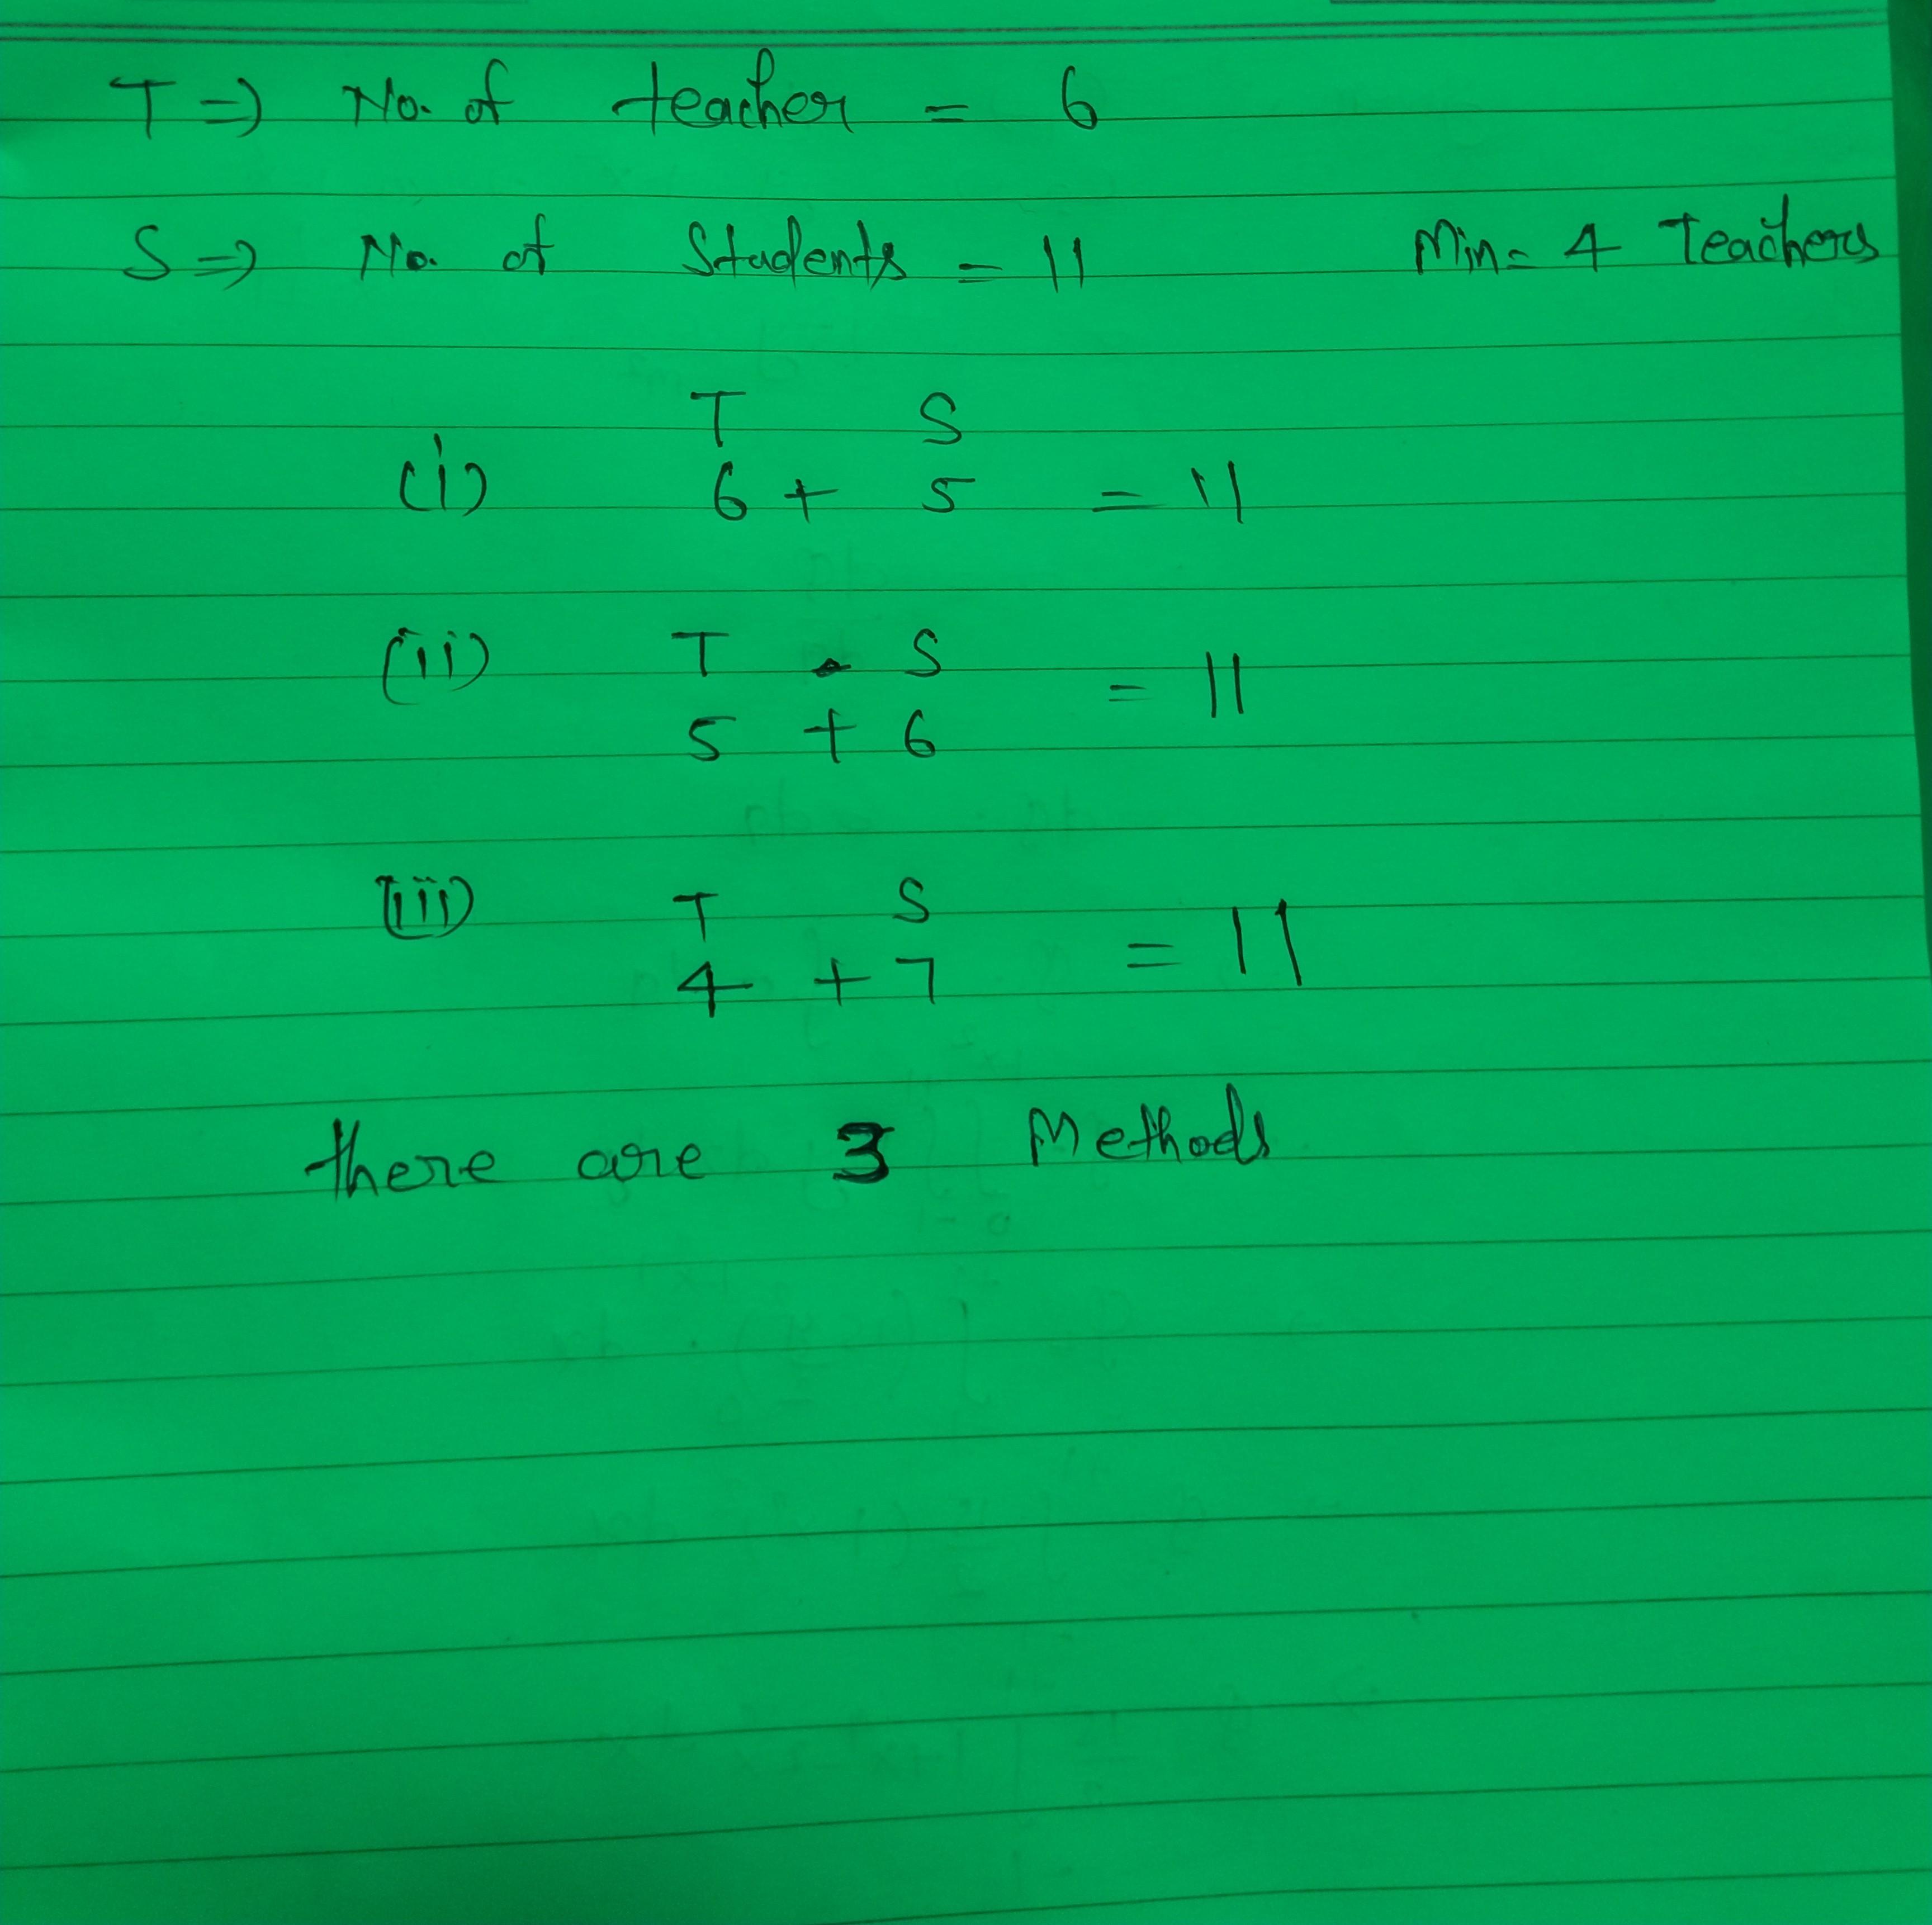 T => No. of teacher = 6
S => No. of Students = 11 Min = 4 Teachers
T S
(i) 6 + 5 = 11
(ii) T S = 11
5 + 6
(iii) T S
4 + 7 = 11
there are 3 Methods